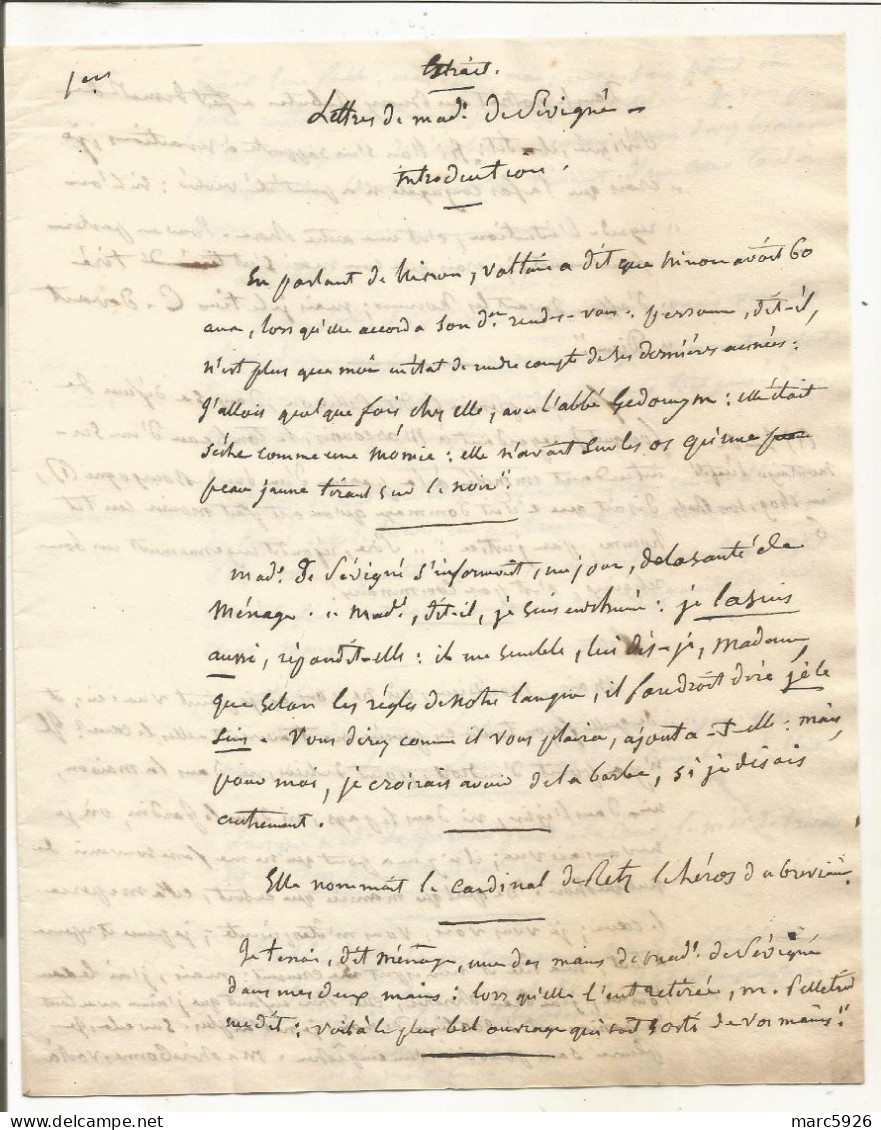 1er.
Extrait.
Lettres de mad.e de Sévigné -
introduction.
En parlant de Ninon, voltaire a dit que ninon avait 60
ans, lorsqu'elle accorda son d.er rendez-vous. personne, dit-il,
n'est plus que moi en état de rendre compte de ses dernières années:
J'allois quelque fois chez elle, avec l'abbé Gedouyn: elle était
sèche comme une momie: elle n'avait sur les os qu'une
peau jaune tirant sur le noir."
mad.e de Sévigné s'informoit, un jour, de la santé de
Ménage. " mad.e, dit-il, je suis enrhumé: je la suis
aussi, répondit-elle: il me semble, lui dis-je, madame,
que selon les règles de notre langue, il faudroit dire je le
suis. Vous direz comme il vous plaira, ajouta-t-elle: mais,
pour moi, je croirais avoir de la barbe, si je disois
autrement.
Elle nommait le cardinal de Retz le héros du bréviaire.
Je tenois, dit ménage, une des mains de mad.e de Sévigné
dans mes deux mains: lorsqu'elle l'eut retirée, m. Pelletier
me dit: voilà le plus bel ouvrage qui soit sorti de vos mains."
marc5926